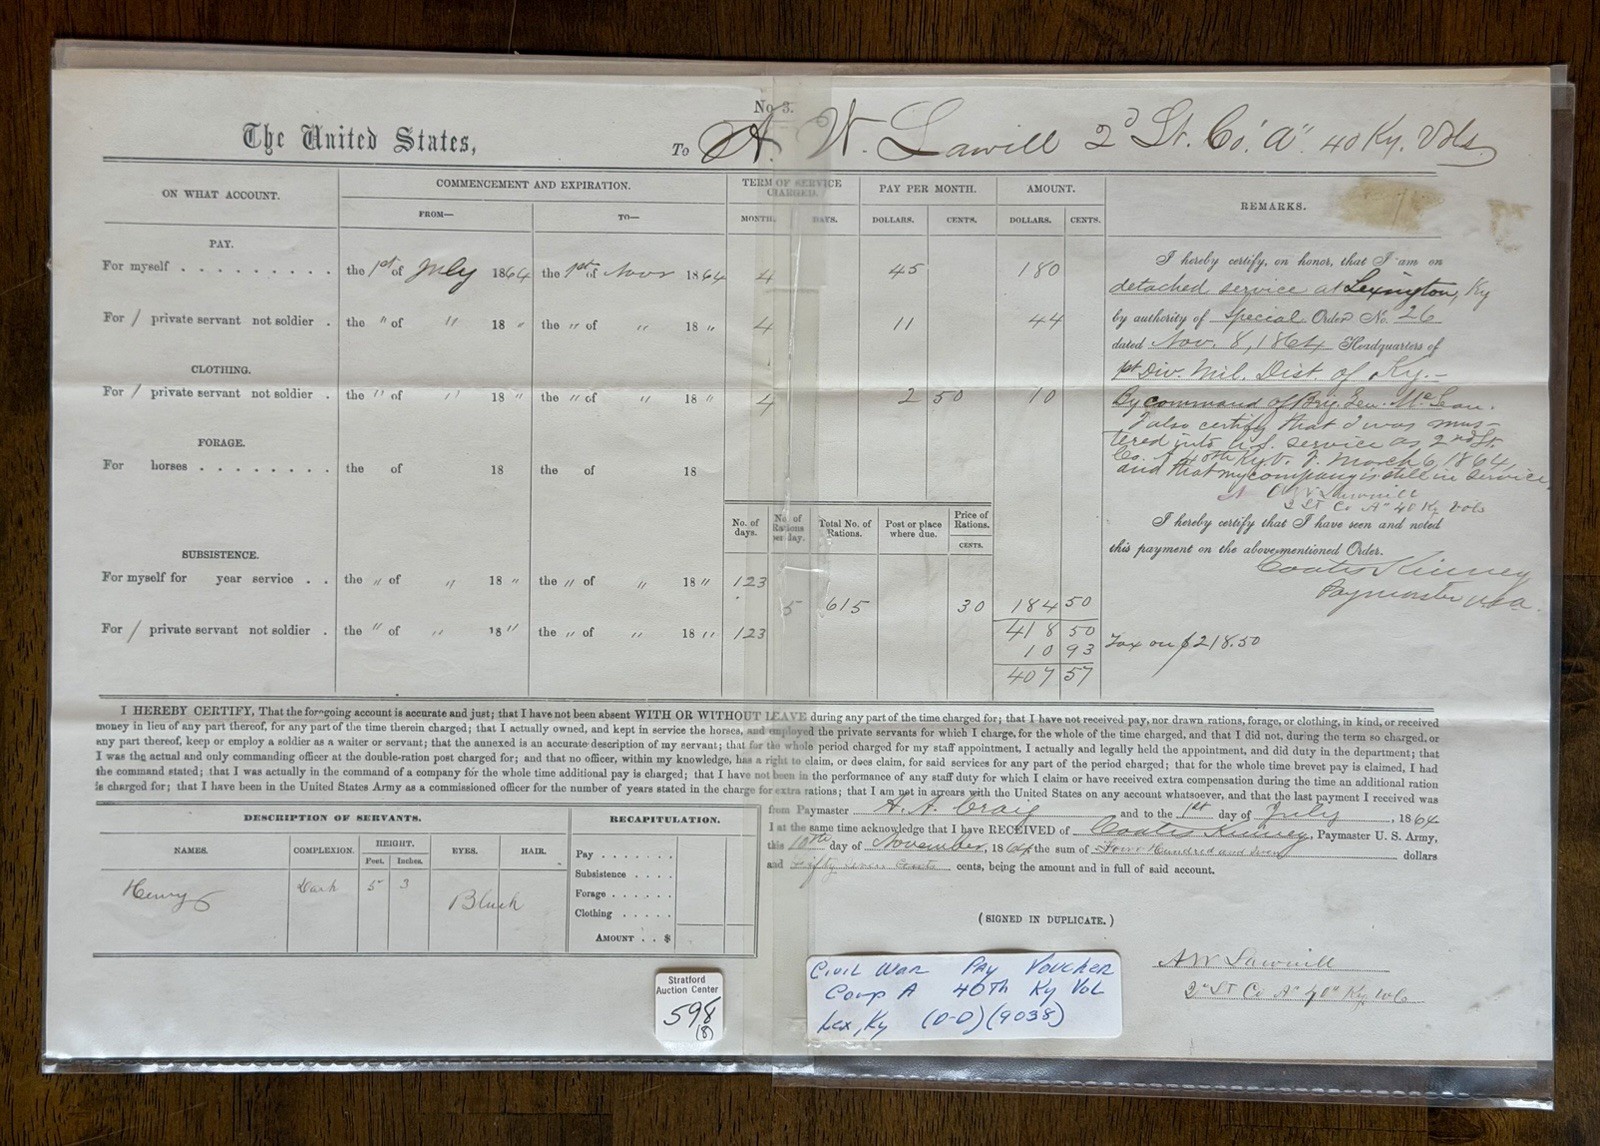 No. 3.
The United States, To A. W. Lawill 2d Lt. Co. "A" 40 Ky. Vols.
ON WHAT ACCOUNT. COMMENCEMENT AND EXPIRATION. TERM OF SERVICE CHARGED. PAY PER MONTH. AMOUNT. REMARKS.
FROM— TO— MONTHS. DAYS. DOLLARS. CENTS. DOLLARS. CENTS.
PAY.
For myself . . . . . . . . . the 1st of July 1864 the 1st of Novr 1864 4 45 180
For 1 private servant not soldier . the " of " 18 " the " of " 18 " 4 11 44
CLOTHING.
For 1 private servant not soldier . the " of " 18 " the " of " 18 " 4 2 50 10
FORAGE.
For horses . . . . . . . . the of 18 the of 18
No. of days. No. of Rations per day. Total No. of Rations. Post or place where due. Price of Rations. CENTS.
SUBSISTENCE.
For myself for year service . . the " of " 18 " the " of " 18 " 123
5 615 30 184 50
For 1 private servant not soldier . the " of " 18 " the " of " 18 " 123
418 50
10 93
407 57
I hereby certify, on honor, that I am on
detached service at Lexington, Ky
by authority of Special Order No. 26
dated Nov. 8, 1864 Headquarters of
1st Div. Mil. Dist. of Ky.-
By command of Brig. Gen. McLean.
I also certify that I was mus-
tered into U.S. service as 2nd Lt.
Co. A 40th Ky. V. I. March 6, 1864,
and that my company is still in service.
A W Lawill
2 Lt Co "A" 40 Ky Vols
I hereby certify that I have seen and noted
this payment on the above-mentioned Order.
Coates Kinney
Paymaster USA.
Tax on $218.50
I HEREBY CERTIFY, That the foregoing account is accurate and just; that I have not been absent WITH OR WITHOUT LEAVE during any part of the time charged for; that I have not received pay, nor drawn rations, forage, or clothing, in kind, or received
money in lieu of any part thereof, for any part of the time therein charged; that I actually owned, and kept in service the horses, and employed the private servants for which I charge, for the whole of the time charged, and that I did not, during the term so charged, or
any part thereof, keep or employ a soldier as a waiter or servant; that the annexed is an accurate description of my servant; that for the whole period charged for my staff appointment, I actually and legally held the appointment, and did duty in the department; that
I was the actual and only commanding officer at the double-ration post charged for; and that no officer, within my knowledge, has a right to claim, or does claim, for said services for any part of the period charged; that for the whole time brevet pay is claimed, I had
the command stated; that I was actually in the command of a company for the whole time additional pay is charged; that I have not been in the performance of any staff duty for which I claim or have received extra compensation during the time an additional ration
is charged for; that I have been in the United States Army as a commissioned officer for the number of years stated in the charge for extra rations; that I am not in arrears with the United States on any account whatsoever, and that the last payment I received was
from Paymaster A. A. Craig and to the 1st day of July, 1864
I at the same time acknowledge that I have RECEIVED of Coates Kinney, Paymaster U. S. Army,
this 10th day of November, 1864 the sum of Four Hundred and seven dollars
and Fifty seven Cents cents, being the amount and in full of said account.
DESCRIPTION OF SERVANTS.
NAMES. COMPLEXION. HEIGHT. EYES. HAIR.
Feet. Inches.
Henry Dark 5 3 Black
RECAPITULATION.
Pay . . . . . . .
Subsistence . . . .
Forage . . . . . .
Clothing . . . . .
AMOUNT . . $
(SIGNED IN DUPLICATE.)
AW Lawill
2d Lt Co "A" 40th Ky Vols
Stratford
Auction Center
598
(8)
Civil War Pay Voucher
Comp A 40th Ky Vol
Lex, Ky (D-D) (9038)